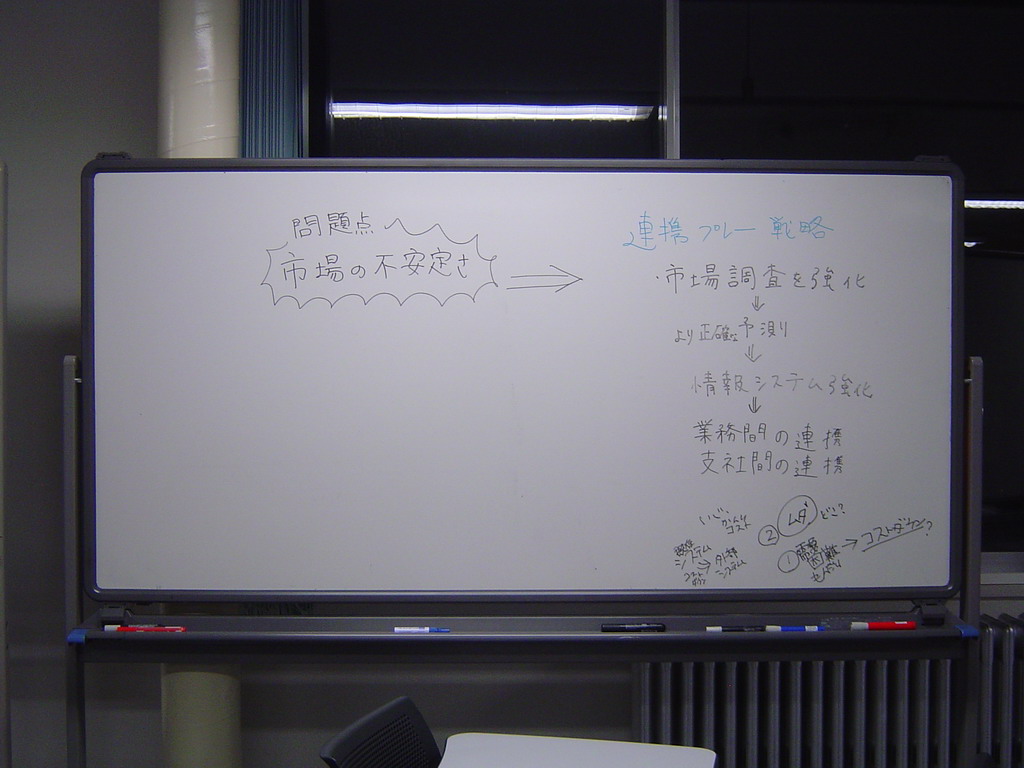 問題点
市場の不安定さ
連携プレー戦略
・市場調査を強化
より正確な予測
情報システム強化
業務間の連携
支社間の連携
いじ、かんり
コスト
② ムダ どこ?
① 需要
困難
コストダウン?
システム
外部
システム
コスト